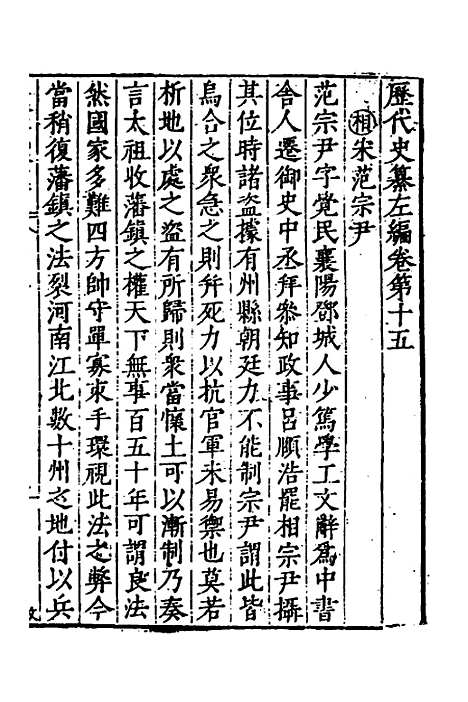 歷代史纂左編卷第十五
相宋范宗尹
范宗尹字覺民襄陽鄧城人少篤學工文辭爲中書
舍人遷御史中丞拜參知政事呂頤浩罷相宗尹攝
其位時諸盜據有州縣朝廷力不能制宗尹謂此皆
烏合之衆急之則幷死力以抗官軍未易禦也莫若
析地以處之盜有所歸則衆當懷土可以漸制乃奏
言太祖收藩鎮之權天下無事百五十年可謂良法
然國家多難四方帥守單寡束手環視此法之弊今
當稍復藩鎮之法裂河南江北數十州之地付以兵